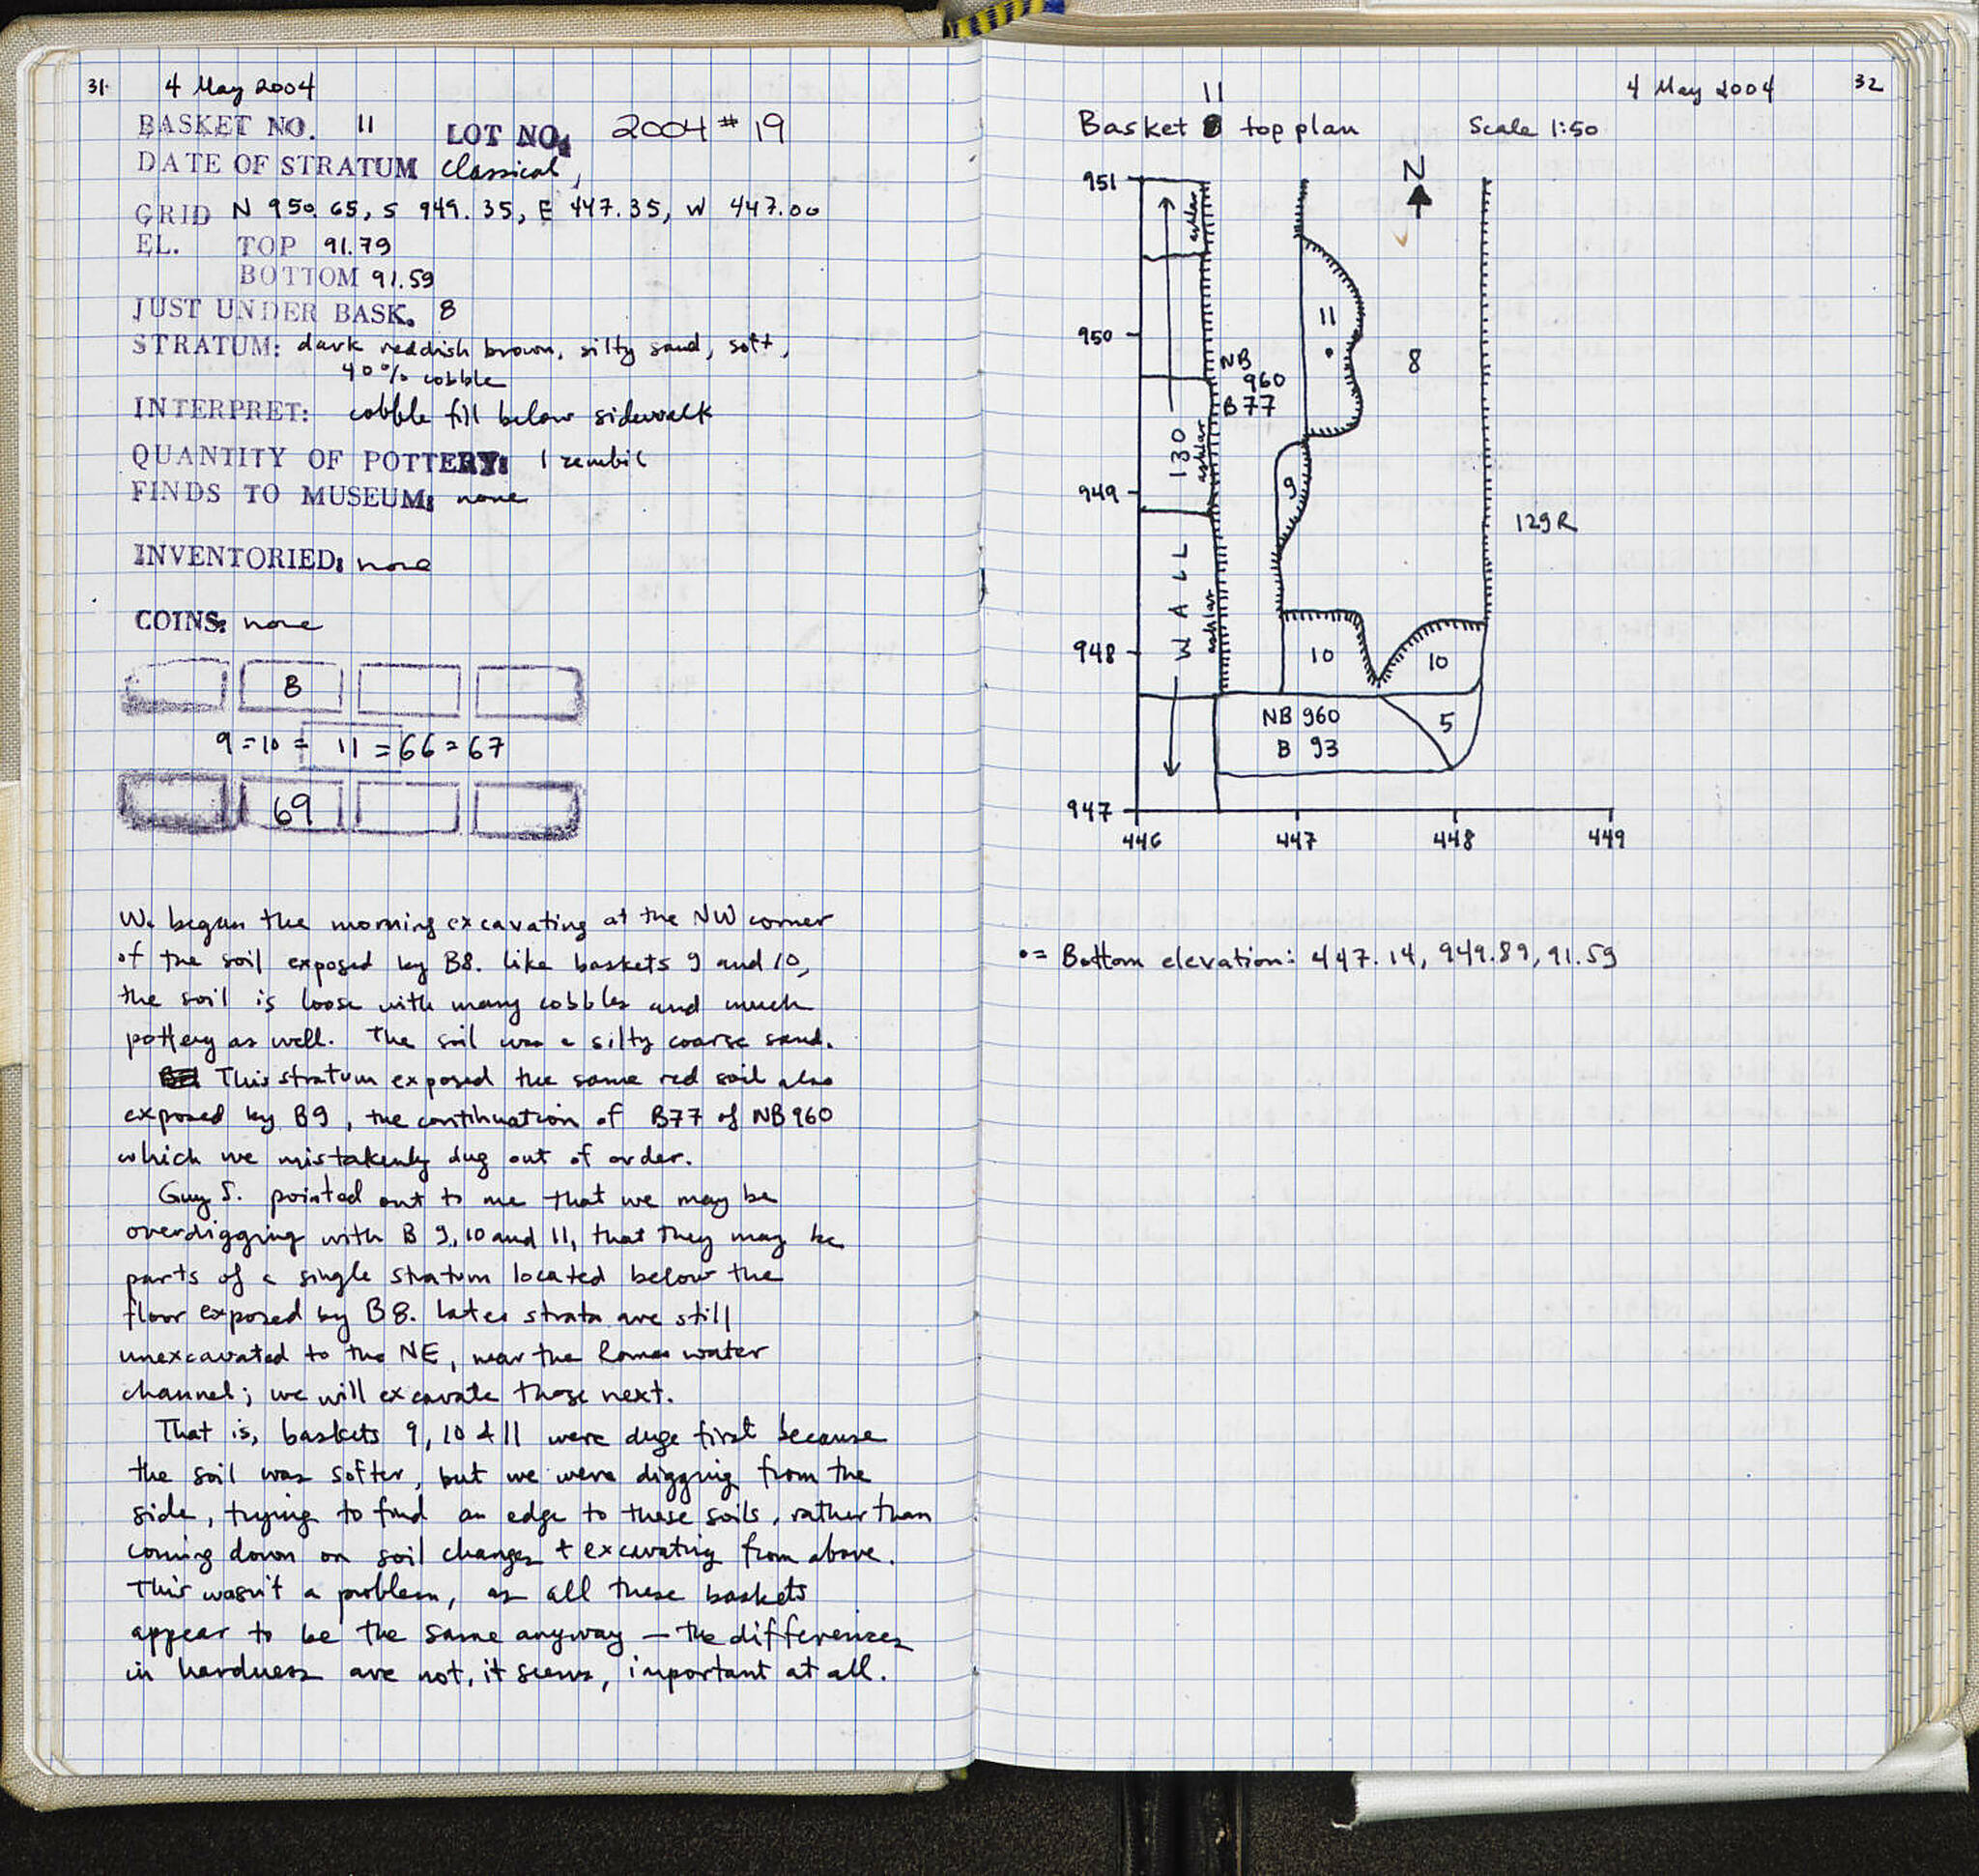 31. 4 May 2004
BASKET NO. 11 LOT NO. 2004 # 19
DATE OF STRATUM Classical,
GRID N 950.65, S 949.35, E 447.35, W 447.00
EL. TOP 91.79
BOTTOM 91.59
JUST UNDER BASK. 8
STRATUM: dark reddish brown, silty sand, soft,
40% cobble
INTERPRET: cobble fill below sidewalk
QUANTITY OF POTTERY: 1 zembil
FINDS TO MUSEUM: none
INVENTORIED: none
COINS: none
8
9=10= 11 =66=67
69
We began the morning excavating at the NW corner
of the soil exposed by B8. Like baskets 9 and 10,
the soil is loose with many cobbles and much
pottery as well. The soil was a silty coarse sand.
This stratum exposed the same red soil also
exposed by B9, the continuation of B77 of NB960
which we mistakenly dug out of order.
Guy S. pointed out to me that we may be
overdigging with B 9, 10 and 11, that they may be
parts of a single stratum located below the
floor exposed by B8. Later strata are still
unexcavated to the NE, near the Roman water
channel; we will excavate those next.
That is, baskets 9, 10 & 11 were duge first because
the soil was softer, but we were digging from the
side, trying to find an edge to these soils, rather than
coming down on soil changes + excavating from above.
This wasn't a problem, as all these baskets
appear to be the same anyway — the differences
in hardness are not, it seems, important at all.
4 May 2004 32
11
Basket top plan Scale 1:50
N
951
ashlar
11
950
8
NB
960
B77
WALL 130
ashlar
949
9
129R
ashlar
948
10
10
NB 960
B 93
5
947
446 447 448 449
• = Bottom elevation: 447.14, 949.89, 91.59